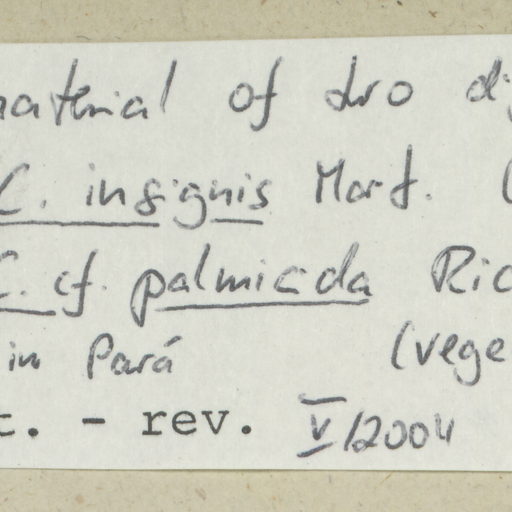 material of two di
C. insignis Mart. (
C. cf. palmicida Ric
in Pará (vege
t. - rev. V/2004